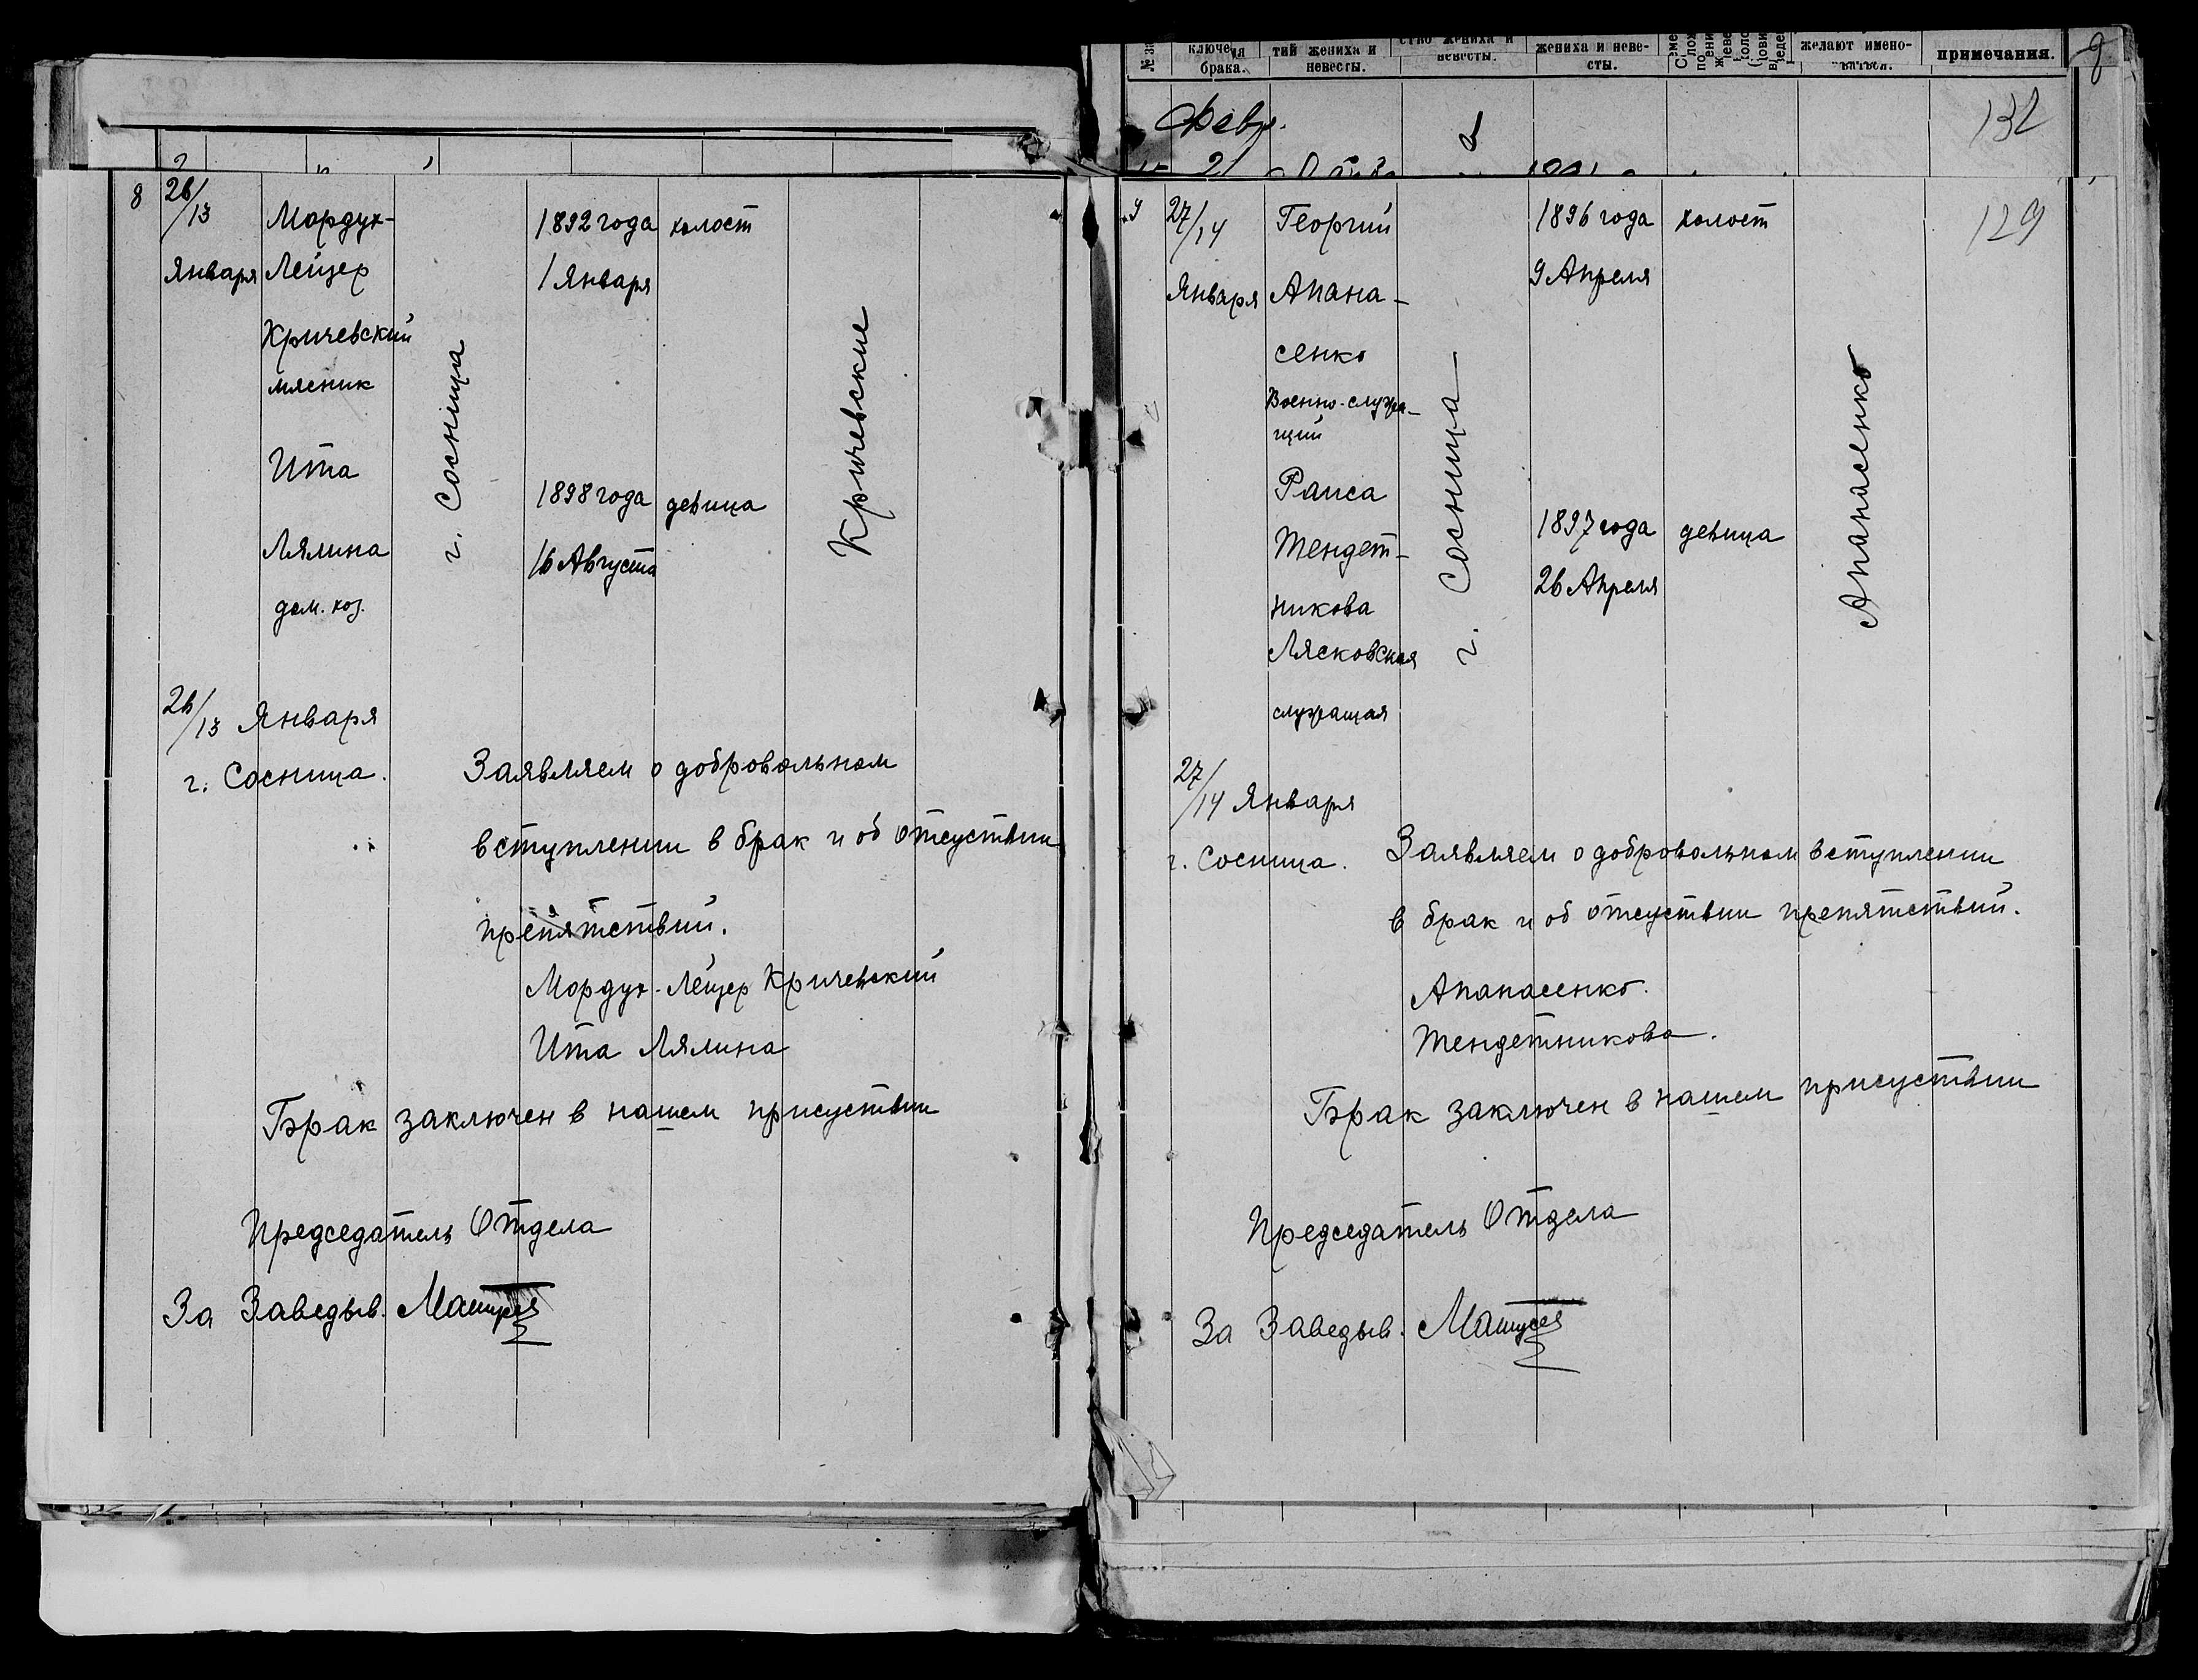 брака.
тий жениха и
невесты.
невесты.
жениха и неве-
сты.
желают имено-
примечания.
Февр.
132
21
8
26/13
Января
Мордух-
Лейзер
Кричевский
мясник
Ита
Лялина
дом. хоз.
г. Сосница
1892 года
1 Января
1898 года
16 Августа
холост
девица
Кричевские
26/13 Января
г. Сосница.
Заявляем о добровольном
вступлении в брак и об отсуствии
препятствий.
Мордух-Лейзер Кричевский
Ита Лялина
Брак заключен в нашем присуствии
Председатель Отдела
За Заведыв.
9
27/14
Января
Георгий
Апана-
сенко
Военно-служа-
щий
Раиса
Тендет-
никова
Лясковская
служащая
г. Сосница
1896 года
9 Апреля
1897 года
26 Апреля
холост
девица
Апанасенко
129
27/14 Января
г. Сосница.
Заявляем о добровольном вступлении
в брак и об отсуствии препятствий.
Апанасенко.
Тендетникова.
Брак заключен в нашем присуствии
Председатель Отдела
За Заведыв.